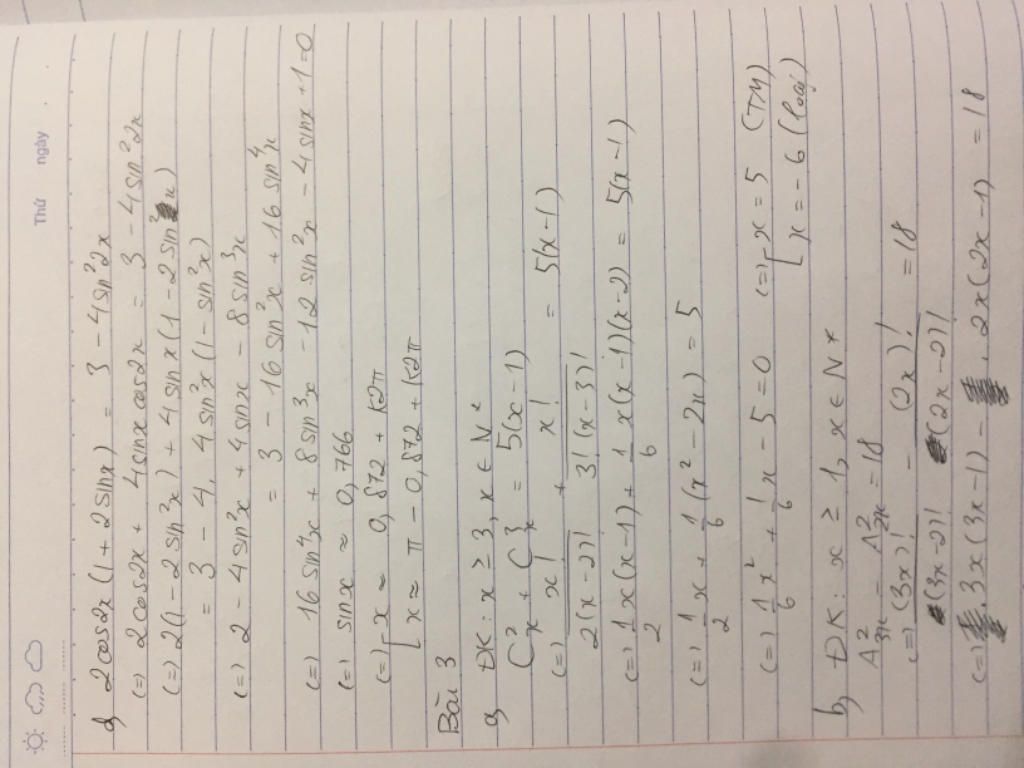 Thứ ngày
d, 2cos2x (1 + 2sinx) = 3 - 4sin²2x
(=) 2cos2x + 4sinxcos2x = 3 - 4sin²2x
(=) 2(1 - 2sin²x) + 4sinx(1 - 2sin²x)
= 3 - 4. 4sin²x (1 - sin²x)
(=) 2 - 4sin²x + 4sinx - 8sin³x
= 3 - 16sin²x + 16sin⁴x
(=) 16sin⁴x + 8sin³x - 12sin²x - 4sinx + 1 = 0
(=) sinx ≈ 0,766
(=) [ x ≈ 0,872 + k2π
[ x ≈ π - 0,872 + k2π
Bài 3
a, ĐK: x ≥ 3, x ∈ N*
C²ₓ + C³ₓ = 5(x - 1)
(=) x! / 2(x-2)! + x! / 3!(x-3)! = 5(x-1)
(=) 1/2 x(x-1) + 1/6 x(x-1)(x-2) = 5(x-1)
(=) 1/2 x + 1/6 (x² - 2x) = 5
(=) 1/6 x² + 1/6 x - 5 = 0 (=) [ x = 5 (TM)
[ x = -6 (loại)
b, ĐK: x ≥ 1, x ∈ N*
A²₃ₓ - A²₂ₓ = 18
(=) (3x)! / (3x-2)! - (2x)! / (2x-2)! = 18
(=) 3x(3x-1) - 2x(2x-1) = 18